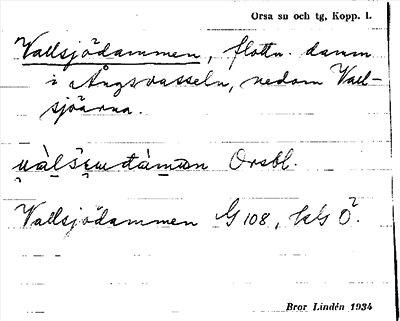 Orsa su och tg, Kopp. l.
Vallsjödammen, flottn. damm
i Ångsvasseln, nedom Vall-
sjöarna.
Orsbl.
Vallsjödammen G 108, k/G Ö.
Bror Lindén 1934